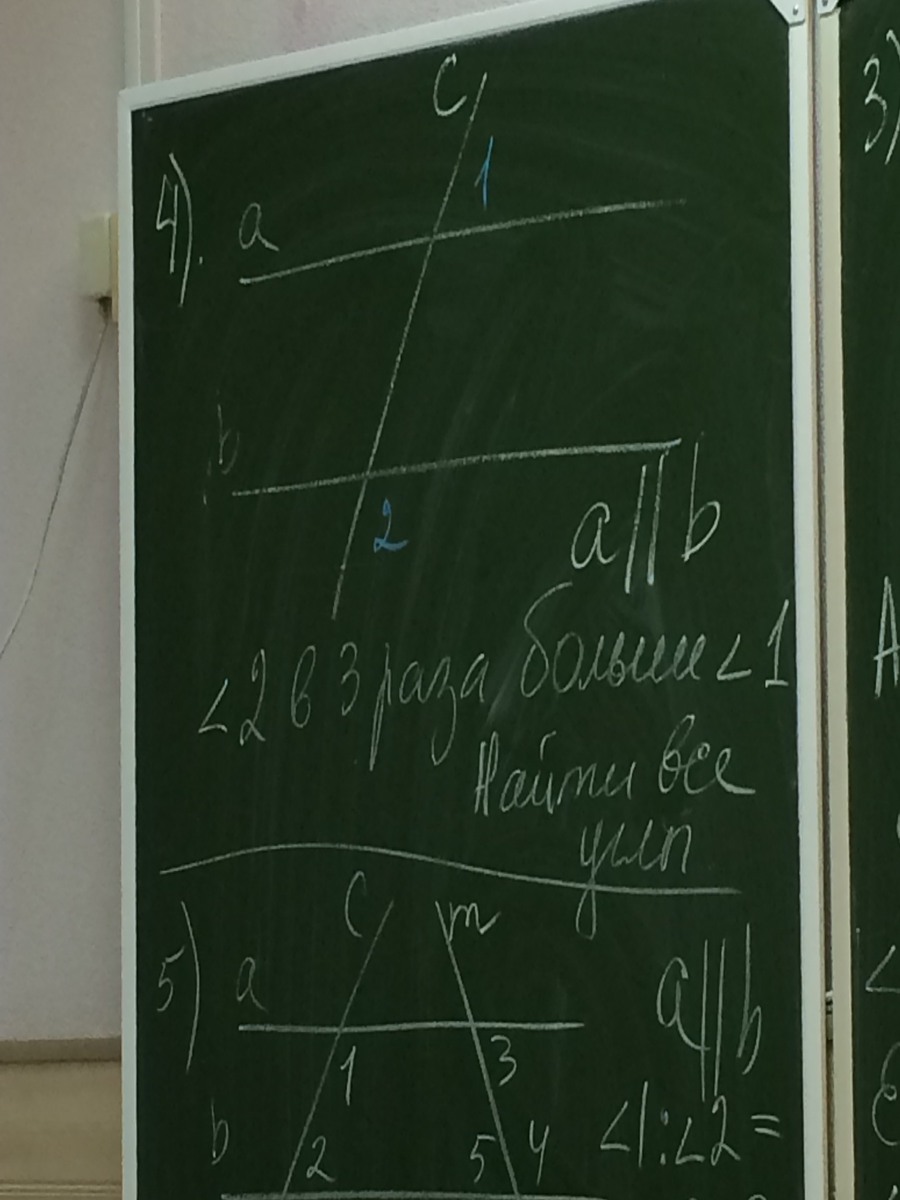 4).
c
1
a
b
2
a||b
<2 в 3 раза больше <1
Найти все
углы
5)
c m
a
a||b
1 3
b
<1:<2 =
2 5 4
3)